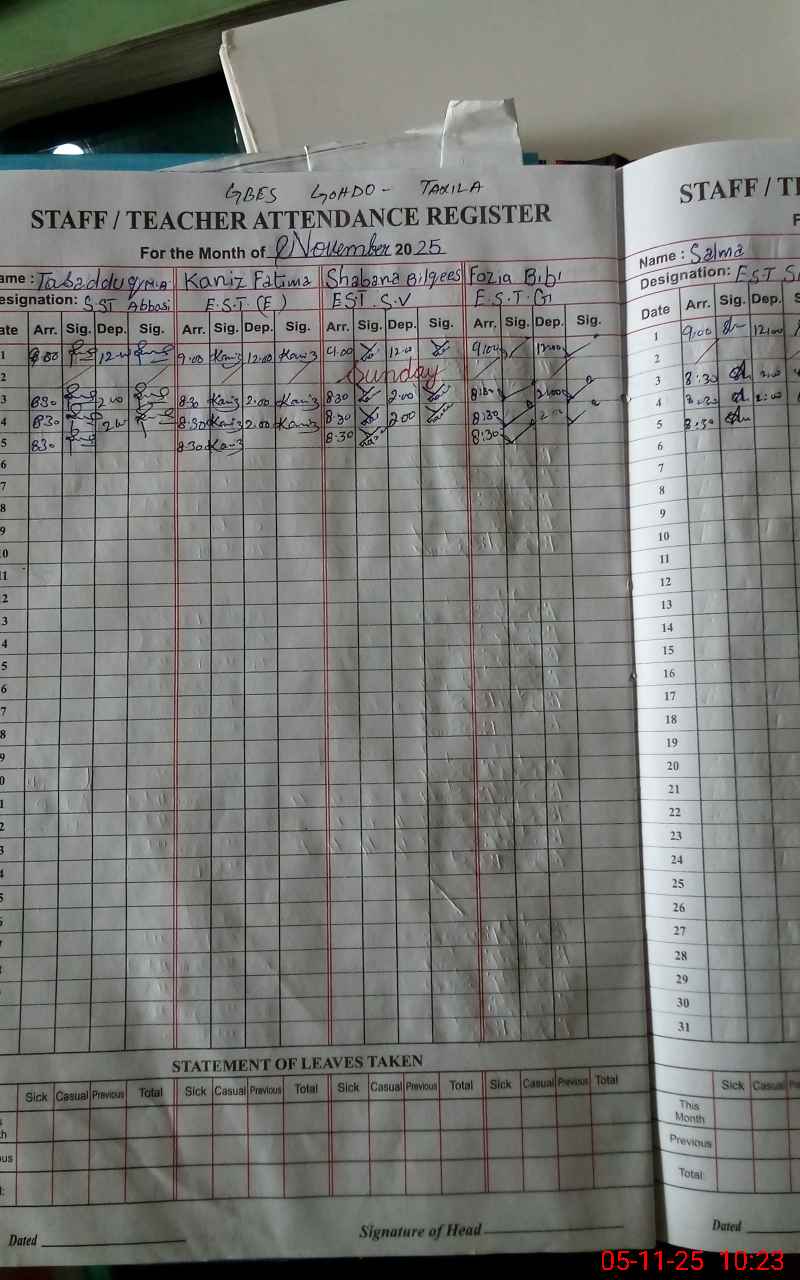 GBES GOHDO - TAXILA
STAFF / TEACHER ATTENDANCE REGISTER
For the Month of November 2025
ame : Tasadduq Kaniz Fatima Shabana Bilqees Fozia Bibi
esignation: SST Abbasi E.S.T (E) EST S.V E.S.T G
ate Arr. Sig. Dep. Sig. Arr. Sig. Dep. Sig. Arr. Sig. Dep. Sig. Arr. Sig. Dep. Sig.
1 12.00 9.00 Kaniz 12.00 Kaniz 9.00 12.00 9:00 12:00
2 Sunday
3 830 2.00 8.30 Kaniz 2.00 Kaniz 8.30 2.00 8:30 2:00
4 830 2.00 8.30 Kaniz 2.00 Kaniz 8.30 2.00 8:30 2:00
5 830 8.30 Kaniz 8.30 8:30
6
7
8
9
10
11
2
3
4
5
6
7
8
9
0
1
2
3
4
5
STATEMENT OF LEAVES TAKEN
Sick Casual Previous Total Sick Casual Previous Total Sick Casual Previous Total Sick Casual Previous Total
h
ous
l:
Dated Signature of Head
STAFF / TE
F
Name : Salma
Designation: EST S
Date Arr. Sig. Dep. S
1 9,00 12,00
2
3 8:30 2.00
4 8.30 2:00
5 8:30
6
7
8
9
10
11
12
13
14
15
16
17
18
19
20
21
22
23
24
25
26
27
28
29
30
31
Sick Casual Pre
This
Month
Previous
Total:
Dated
05-11-25 10:23